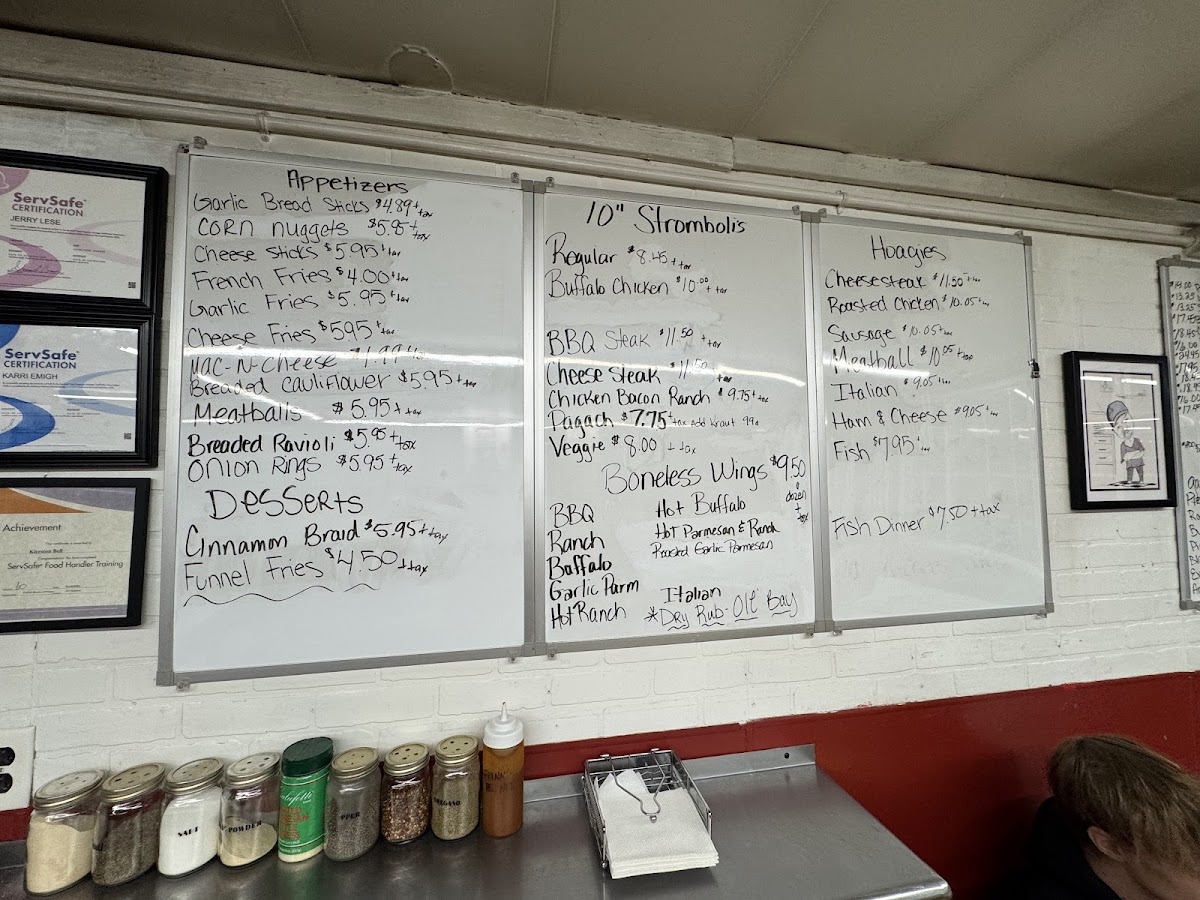 ServSafe
CERTIFICATION
JERRY LESE
ServSafe
CERTIFICATION
KARRI EMIGH
Achievement
ServSafe Food Handler Training
Appetizers
Garlic Bread Sticks $4.89 + tax
CORN nuggets $5.95 + tax
Cheese Sticks $5.95 + tax
French Fries $4.00 + tax
Garlic Fries $5.95 + tax
Cheese Fries $5.95 + tax
MAC-N-Cheese
Breaded Cauliflower $5.95 + tax
Meatballs $5.95 + tax
Breaded Ravioli $5.95 + tax
Onion Rings $5.95 + tax
Desserts
Cinnamon Braid $5.95 + tax
Funnel Fries $4.50 + tax
10" Stromboli's
Regular $8.45 + tax
Buffalo Chicken $10.00 + tax
BBQ Steak $11.50 + tax
Cheese Steak $11.50 + tax
Chicken Bacon Ranch $9.75 + tax
Pagach $7.75 + tax add kraut 99¢
Veggie $8.00 + tax
Boneless Wings $9.50 a dozen + tax
BBQ
Ranch
Buffalo
Garlic Parm
Hot Ranch
Hot Buffalo
Hot Parmesan & Ranch
Roasted Garlic Parmesan
Italian
*Dry Rub - Old Bay
Hoagies
Cheesesteak $11.50 + tax
Roasted Chicken $10.05 + tax
Sausage $10.05 + tax
Meatball $10.05 + tax
Italian $9.05 + tax
Ham & Cheese $9.05 + tax
Fish $7.95 + tax
Fish Dinner $7.50 + tax
SALT
POWDER
OREGANO